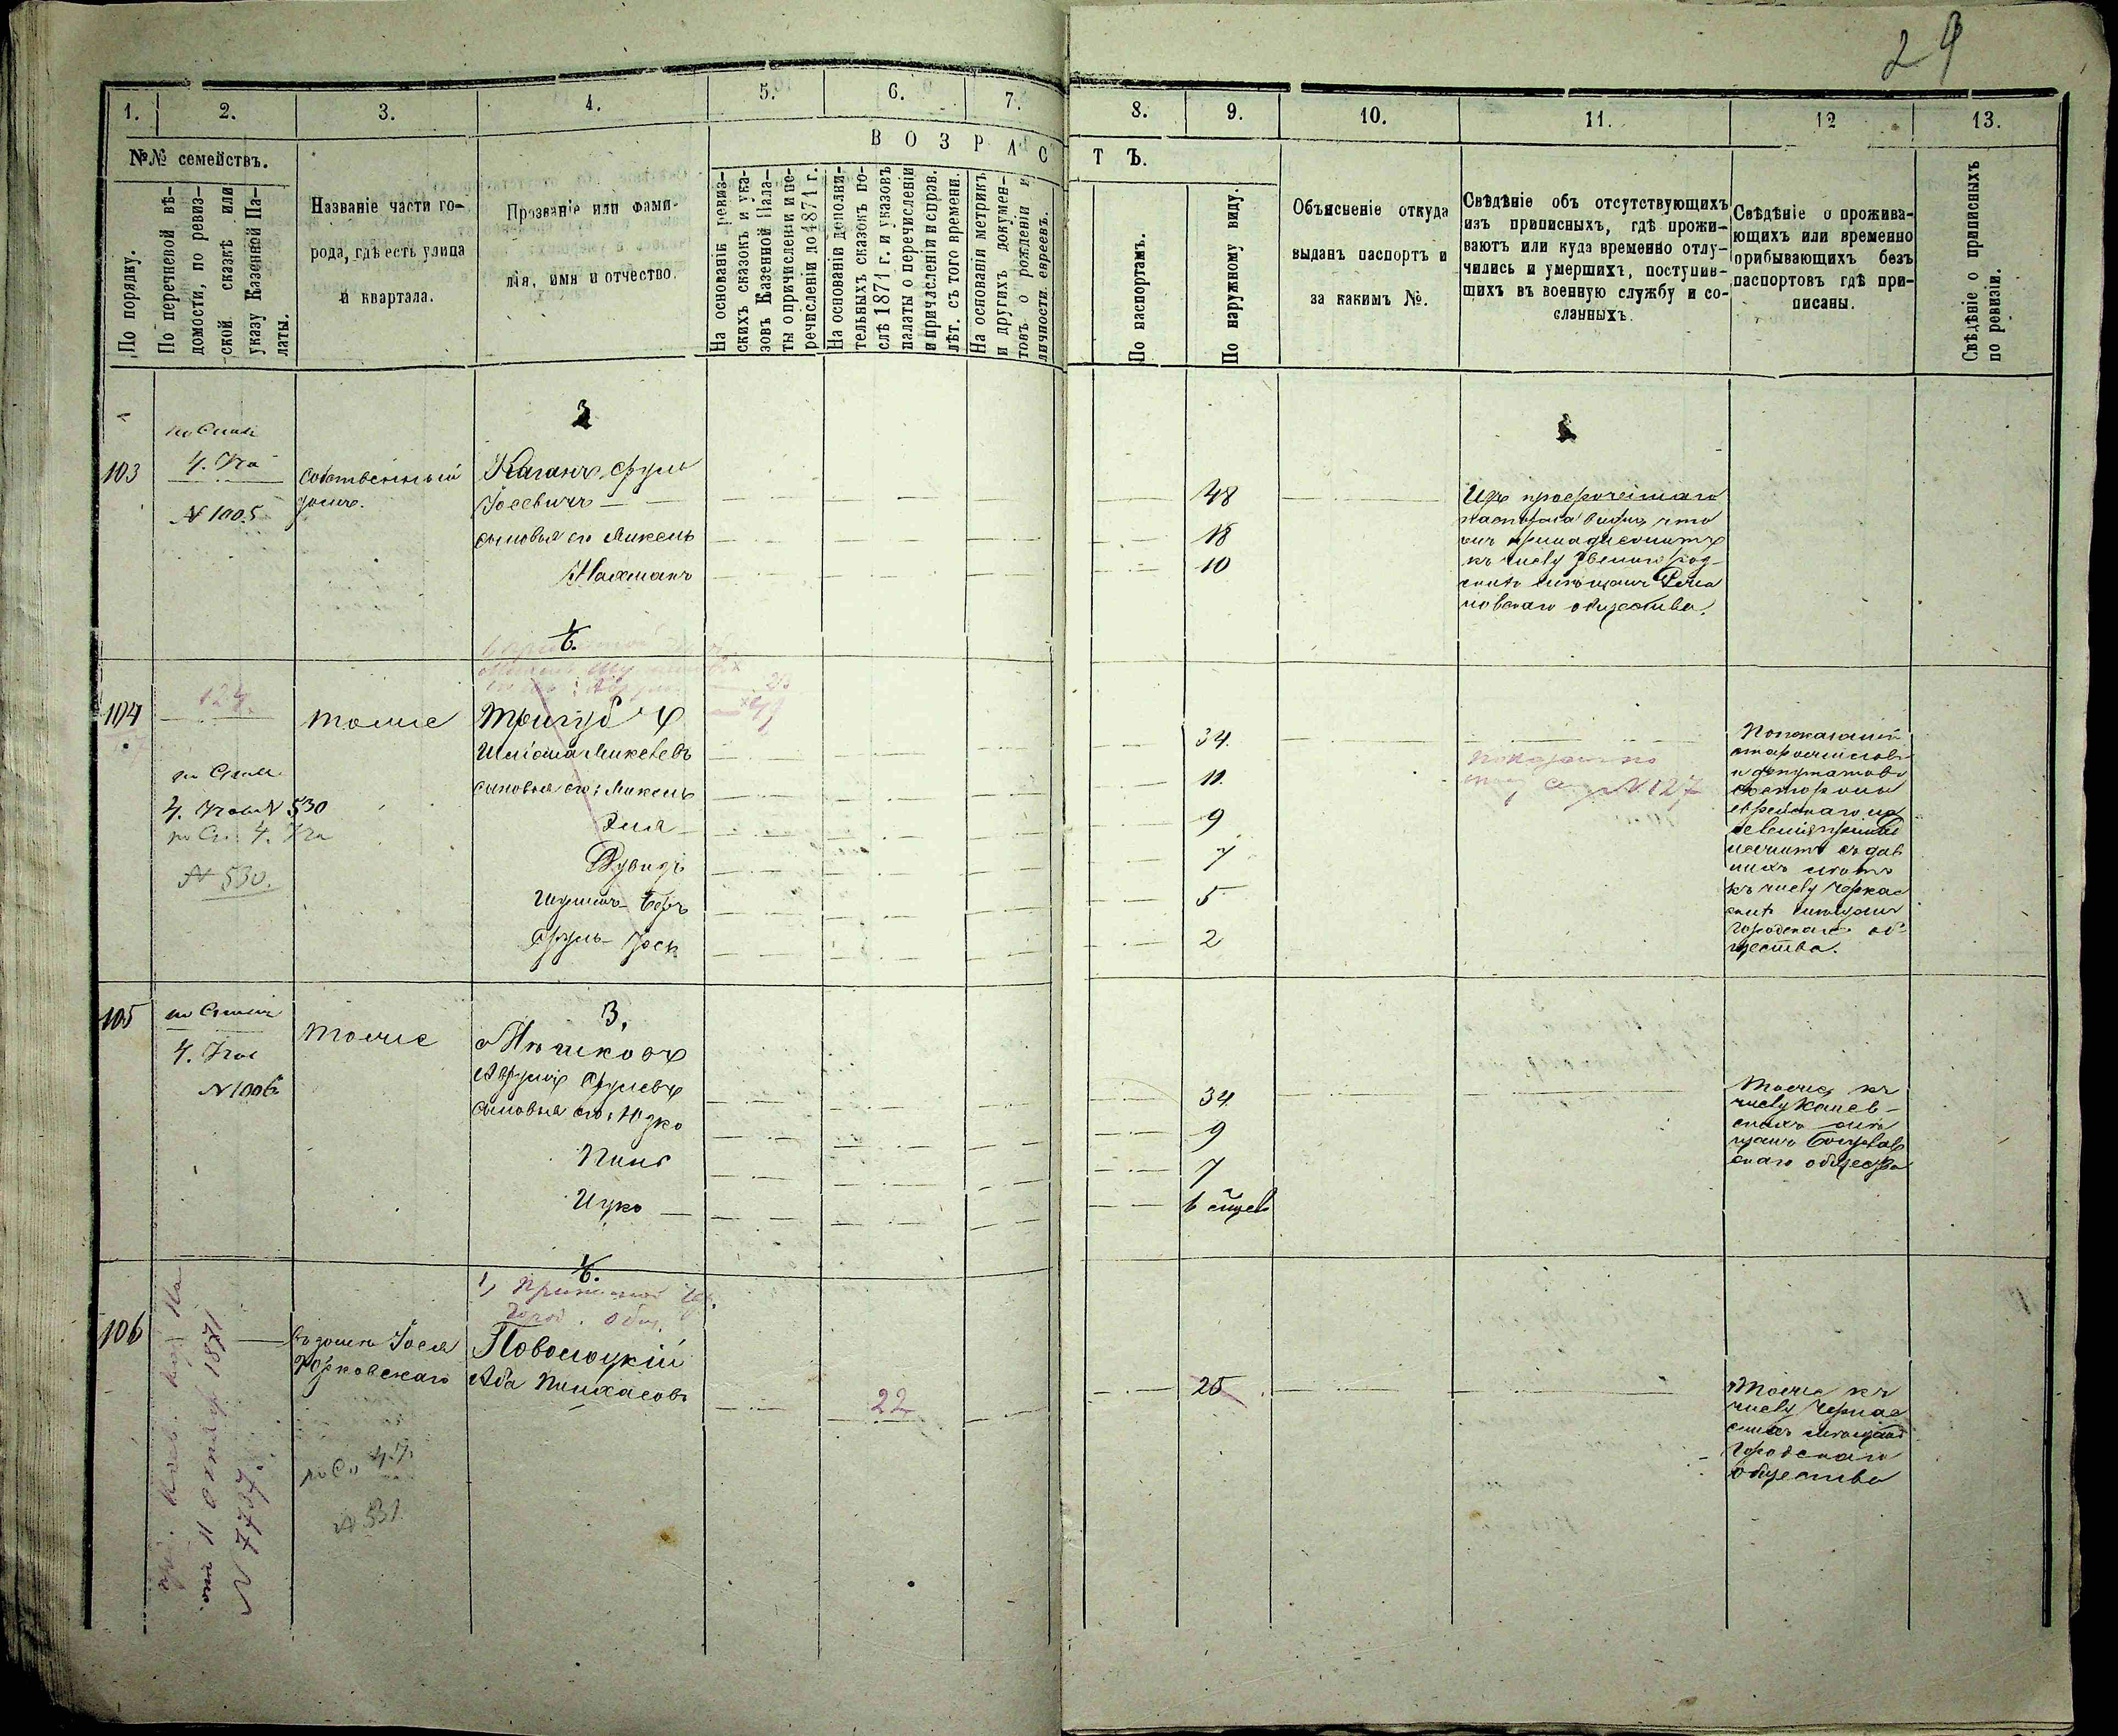 29
1.
2.
3.
4.
5.
6.
7.
8.
9.
10.
11.
12
13.
№№ семействъ.
В О З Р А С Т Ъ.
По порядку.
По перечневой вѣ-
домости, по ревиз-
ской сказкѣ или
указу Казенной Па-
латы.
Названіе части го-
рода, гдѣ есть улица
и квартала.
Прозваніе или фами-
лія, имя и отчество.
На основаніи ревиз-
скихъ сказокъ и ука-
зовъ Казенной Пала-
ты о причисленіи и пе-
речисленіи по 1871 г.
На основаніи дополни-
тельныхъ сказокъ по-
слѣ 1871 г. и указовъ
палаты о перечисленіи
и причисленіи и справ.
лѣт. съ того времени.
На основаніи метрикъ
и другихъ докумен-
товъ о рожденіи и
личности евреевъ.
По паспортамъ.
По наружному виду.
Объясненіе откуда
выданъ паспортъ и
за какимъ №.
Свѣдѣніе объ отсутствующихъ
изъ приписныхъ, гдѣ прожи-
ваютъ или куда временно отлу-
чились и умершихъ, поступив-
шихъ въ военную службу и со-
сланныхъ.
Свѣдѣніе о прожива-
ющихъ или временно
прибывающихъ безъ
паспортовъ гдѣ при-
писаны.
Свѣдѣніе о приписныхъ
по ревизіи.
103
№ 1005
собственный
домъ.
Каганъ Сруль
Іосевичъ — 48
сыновья его Микель 18
Нахманъ 10
Изъ просроченнаго
паспорта видно что
онъ принадлежитъ
къ числу Звенигород-
скихъ мѣщанъ
общества.
1/6.
104
124.
тоже
Тригубъ
Микелевъ 34.
сыновья его: Микель 11.
Эля 9
Дувидъ 7
Беръ 5
Сруль-Іось 2
№ 530
№ 530.
показанъ по
№ 127
По показанію
старшинъ
и депутатовъ
еврейскаго на
селенія
съ дав
нихъ лѣтъ
къ числу Черкас
скихъ мѣщанъ
Городскаго об
щества.
105
№ 1006
тоже
3.
Авруль Срулевъ 34
сыновья его: Юдко 9
Пинс 7
Ицко 6 мѣсяц
Тоже, къ
числу Канев-
скихъ мѣ
щанъ Богуслав
скаго общества
1/6.
106
11 октяб 1871
№ 7737.
въ домѣ Іоселя
Юрковскаго
Город. Общ.
Поволоцкій
Аба Пинхасовъ 22 25
№ 531
Тоже къ
числу Черкас
скихъ мѣщанъ
Городскаго
общества